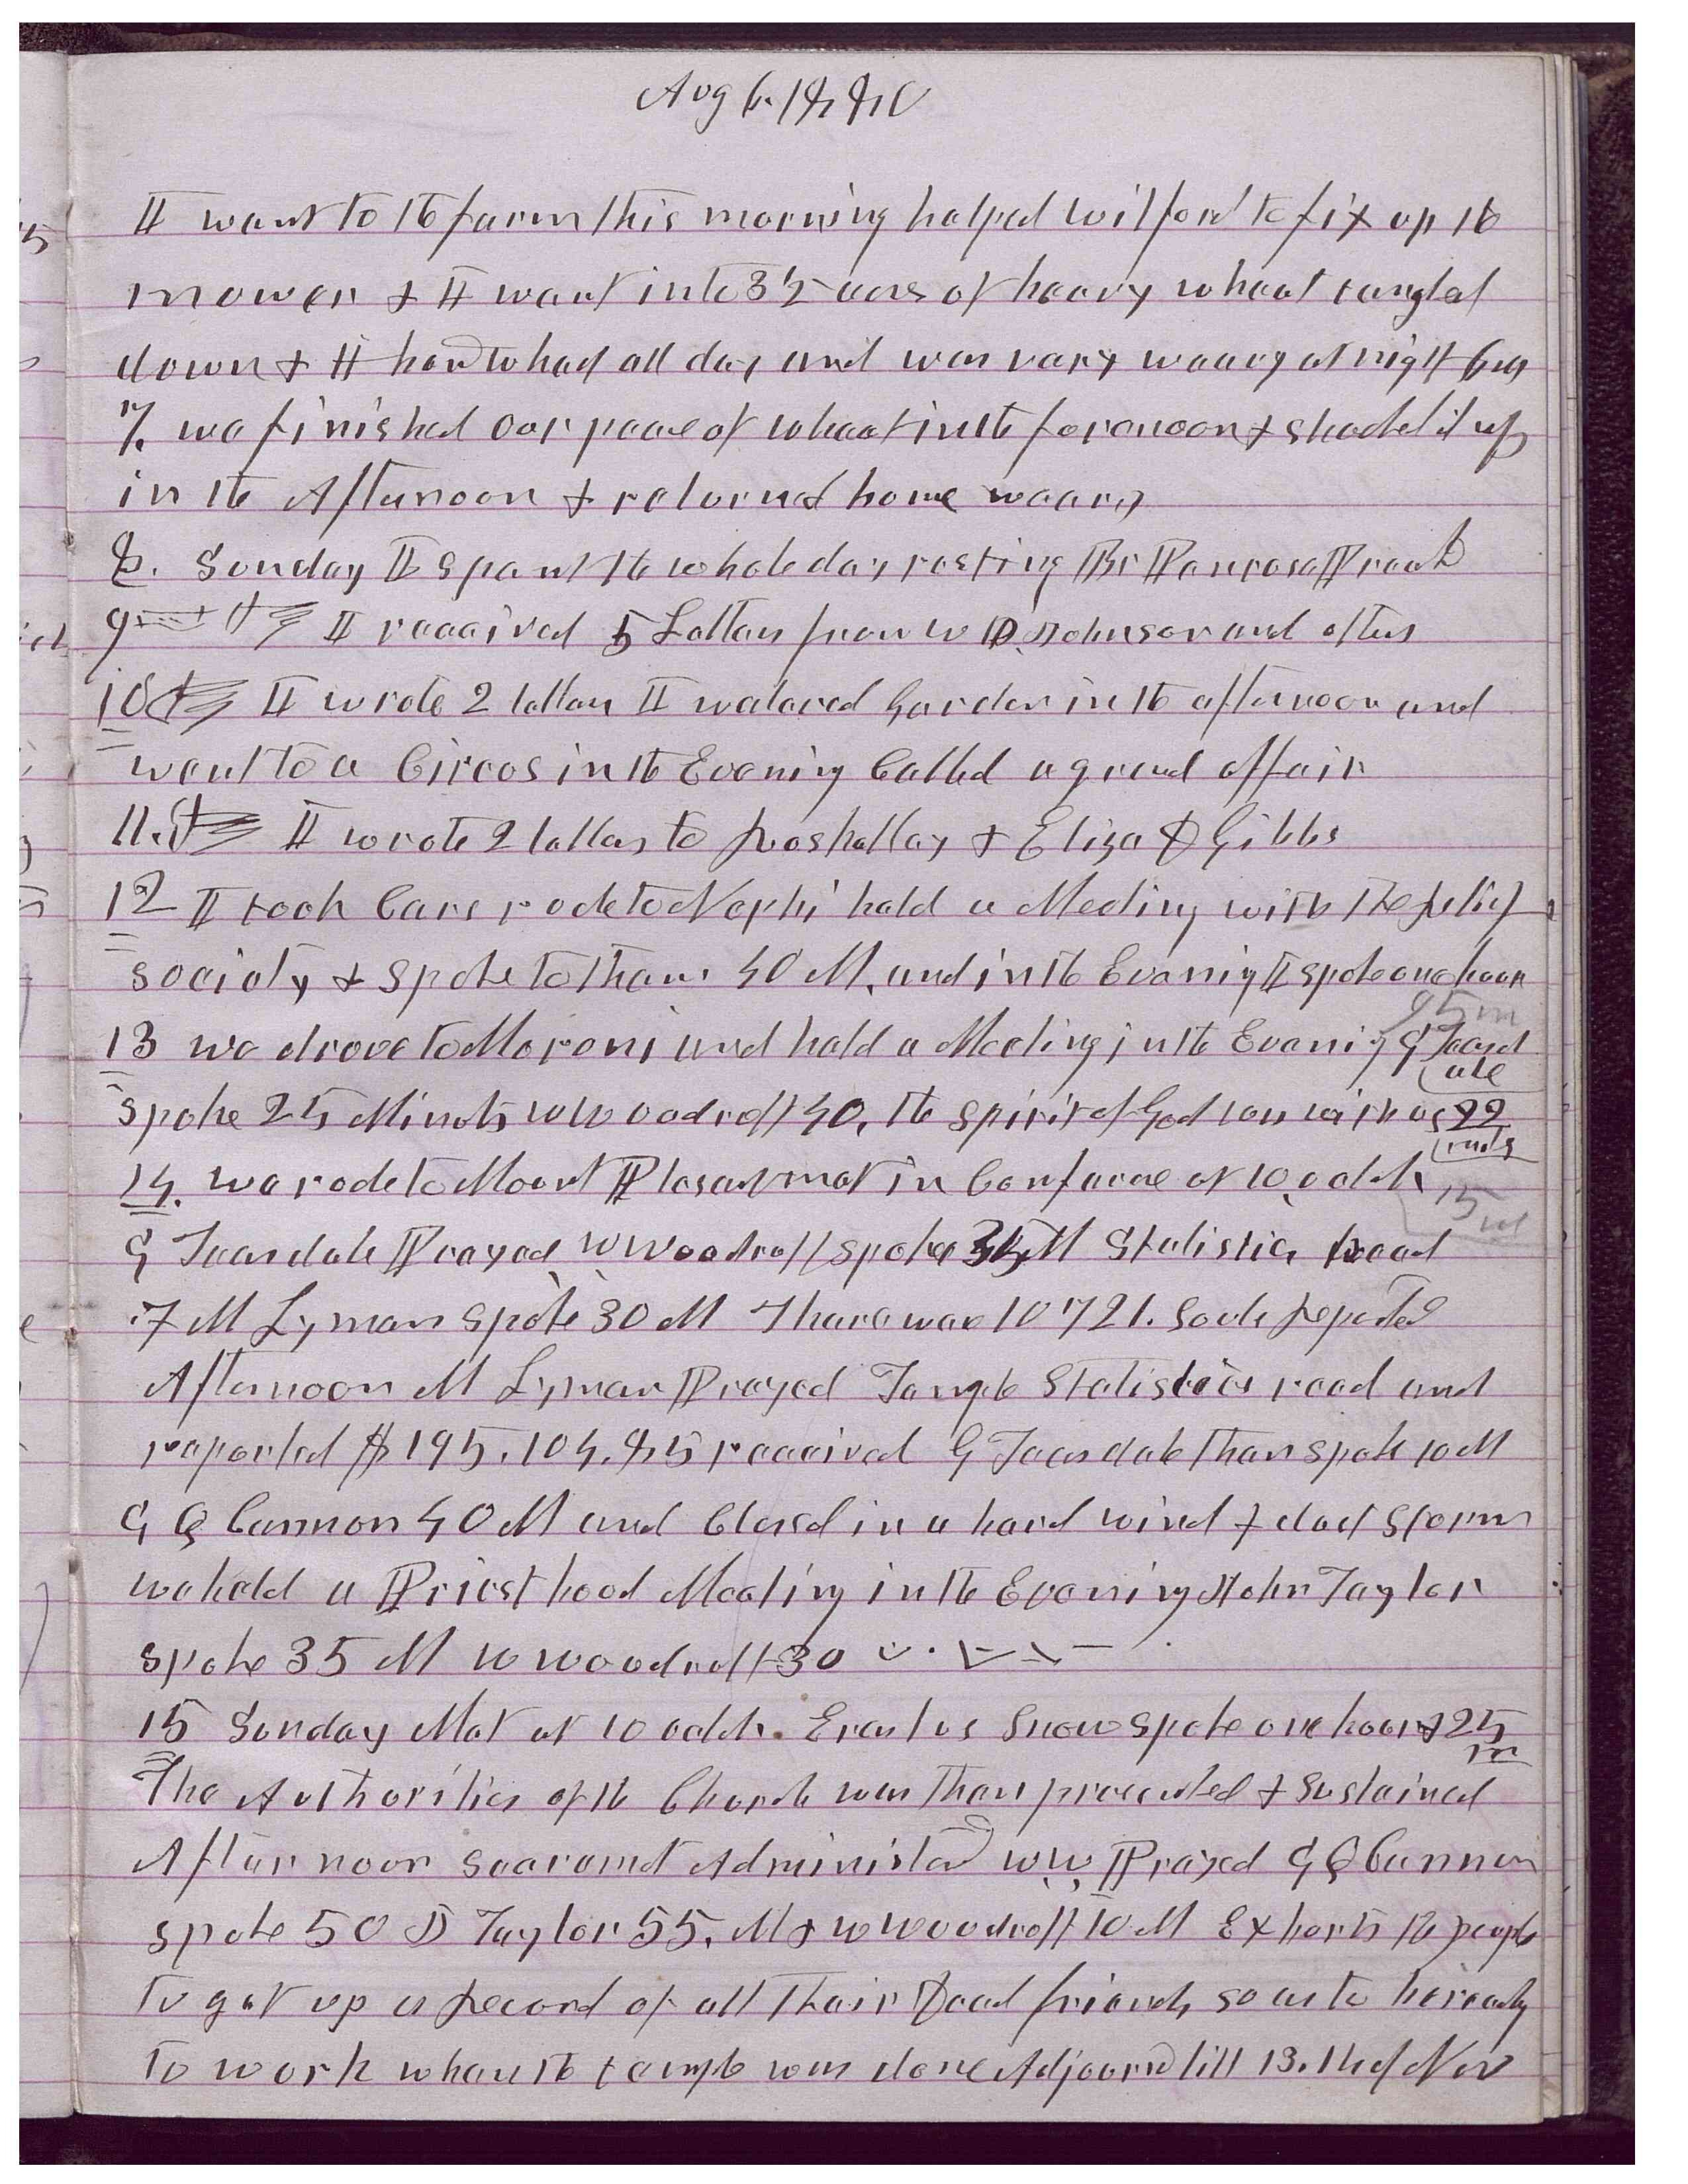 Aug 6. 1880
I went to the farm this morning helped Wilford to fix up the
mower & I went into 3½ acres of heavy wheat tangled
down & I hard whed all day and was very weary at night
7. we finished our peace of wheat in the forenoon & shocked it up
in the Afternoon & returned home weary
8. Sunday I spent the whole day resting Br Penrose Preach
9 I received 5 Letters from W D. Johnson and others
10 I wrote 2 letters I watered Garden in the afternoon and
went to a Circos in the Evening Called a grand affair
11. I wrote 2 letters to Roskelley & Eliza & Gibbs
12 I took Cars rode to Nephi held a Meeting with the Relief
society & spoke to them 40 M. and in the Evening I spoke one hour
15 m
13 we drove to Moroni and held a Meeting in the Evening G Teasd
ale
spoke 25 Minuts W Woodruff 40. the spirit of God was with us 22
mls
14. we rode to Mount Plesant met in Conferne at 10 oclok
15 ml
G Teasdale Prayed W Woodruff spoke 35 M Statistics read
F M Lyman spoke 30 M There ware 10721. Souls Reported
Afternoon M Lyman Prayed Temple Statistics read and
reported $195.104.85 received G Teasdale then spoke 10 M
G Q Cannon 40 M and Closed in a hard wind & dust storm
we held a Priesthood Meeting in the Evening John Taylor
spoke 35 M W Woodruff 30
15 Sunday Met at 10 oclok. Erastus Snow spoke one hour & 25
m
The Authorities of the Church was then presented & sustained
Afternoon Sacrament Administerd W W Prayed G Q Cannon
spoke 50 J Taylor 55. M & W Woodruff 10 M Exhorts the people
to get up a Record of all their Dead friends so as to be ready
to work when the temple was done Adjourd till 13. 14 of Nov